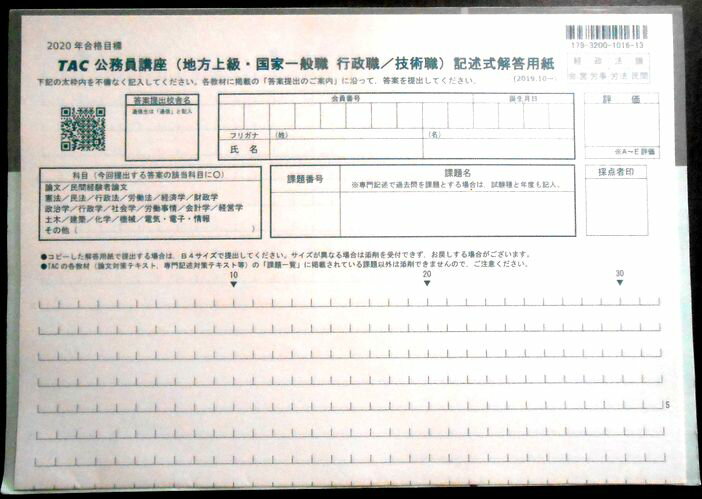 2020年合格目標
TAC 公務員講座（地方上級・国家一般職 行政職／技術職）記述式解答用紙
178-3200-1016-13
下記の太枠内を不備なく記入してください。各教材に掲載の「答案提出のご案内」に沿って、答案を提出してください。
(2019.10～)
経 政 法 論
会 営 労事 労法 民間
答案提出校舎名
通信生は「通信」と記入
会員番号
誕生月日
フリガナ
（姓）
（名）
氏 名
評 価
※A～E評価
科目（今回提出する答案の該当科目に○）
論文／民間経験者論文
憲法／民法／行政法／労働法／経済学／財政学
政治学／行政学／社会学／労働事情／会計学／経営学
土木／建築／化学／機械／電気・電子・情報
その他（ ）
課題番号
課題名
※専門記述で過去問を課題とする場合は、試験種と年度も記入。
採点者印
●コピーした解答用紙で提出する場合は、B4サイズで提出してください。サイズが異なる場合は添削を受付できず、お戻しする場合がございます。
●TACの各教材（論文対策テキスト、専門記述対策テキスト等）の「課題一覧」に掲載されている課題以外は添削できませんので、ご注意ください。
10
20
30
5